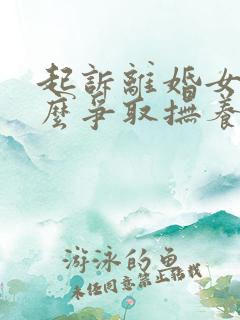 起訴離婚女
麼爭取撫養
游泳的鱼
未经同意禁止转载